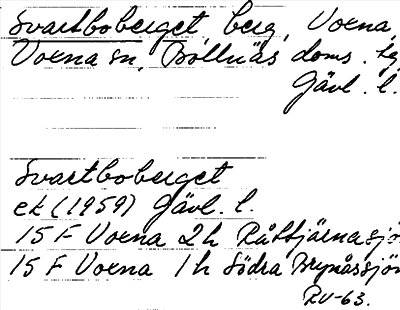 Svartboberget, berg, Voxna,
Voxna sn, Bollnäs doms. tg
Gävl. l.
Svartboberget
ek (1959) Gävl. l.
15 F Voxna 2h Råttjärnasjö
15 F Voxna 1h Södra Brynåssjön
RV-63.